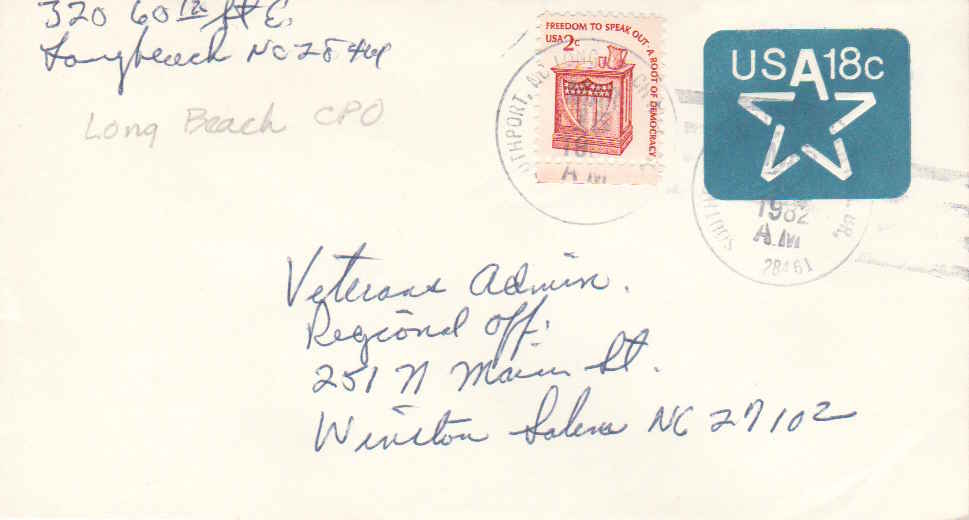 320 60th St E.
Longbeach NC 28461
Long Beach CPO
FREEDOM TO SPEAK OUT · A ROOT OF DEMOCRACY
USA 2c
USA 18c
A
THPORT, NC
A.M
SOUTH
BR.
1982
A.M
28461
Veterans Admin.
Regional Off.
251 N Main St.
Winston Salem NC 27102